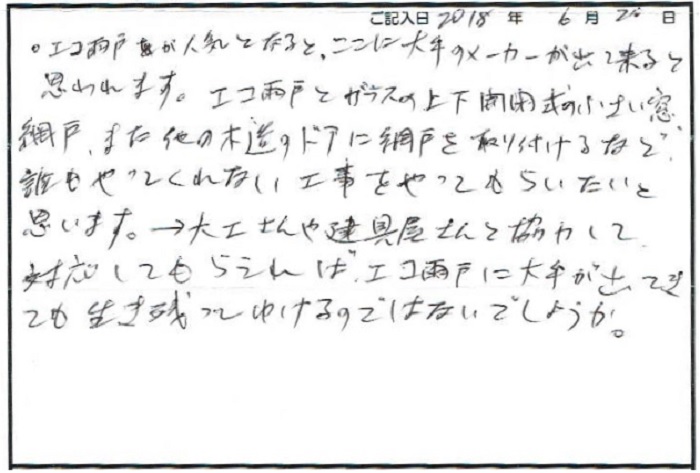 ご記入日 2018 年 6 月 20 日
○エコ雨戸が人気となると、ここに大手のメーカーが出て来ると
思われます。エコ雨戸とガラスの上下開閉式の小さい窓
網戸、また他の木造のドアに網戸を取り付けるなど、
誰もやってくれない工事をやってもらいたいと
思います。→大工さんや建具屋さんと協力して
対応してもらえれば、エコ雨戸に大手が出てき
ても生き残ってゆけるのではないでしょうか。